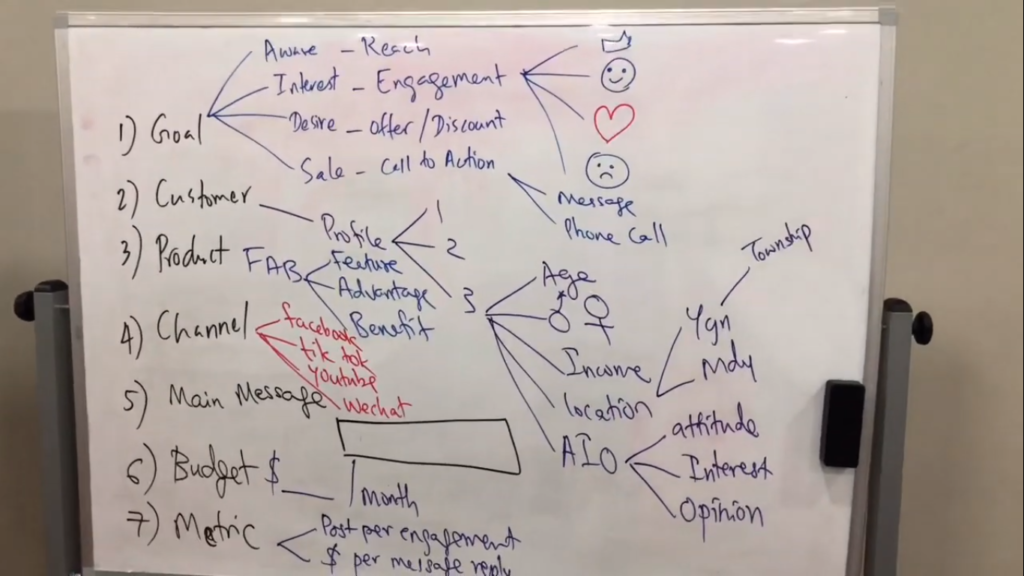 1) Goal
Aware – Reach
Interest – Engagement
Desire – offer / Discount
Sale – Call to Action
Message
Phone Call
2) Customer
Profile
1
2
3
Age
Income
location
Ygn
Township
Mdy
AIO
attitude
Interest
Opinion
3) Product
FAB
Feature
Advantage
Benefit
4) Channel
facebook
tik tok
Youtube
Wechat
5) Main Message
6) Budget $ __ / Month
7) Metric
Post per engagement
$ per message reply